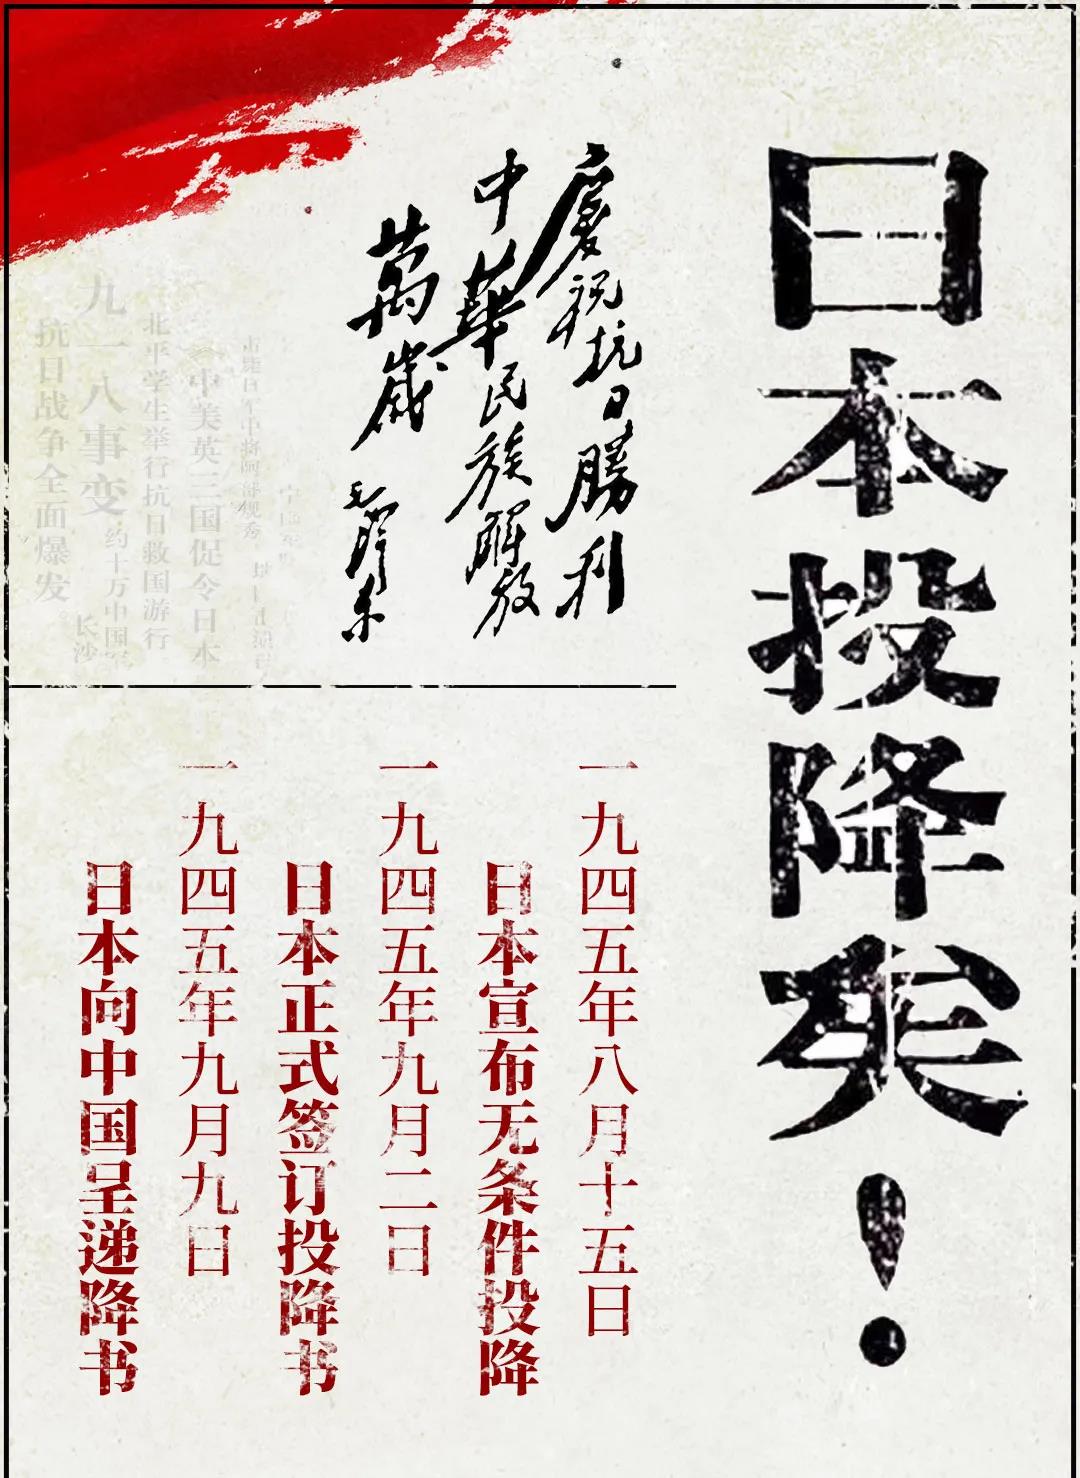 日本投降矣！
慶祝抗日勝利
中華民族解放
萬歲
毛澤東
一九四五年八月十五日
日本宣布无条件投降
一九四五年九月二日
日本正式签订投降书
一九四五年九月九日
日本向中国呈递降书
中美英三国促令日本
北平学生举行抗日救国游行
约十万中国军
九一八事变
长沙
抗日战争全面爆发